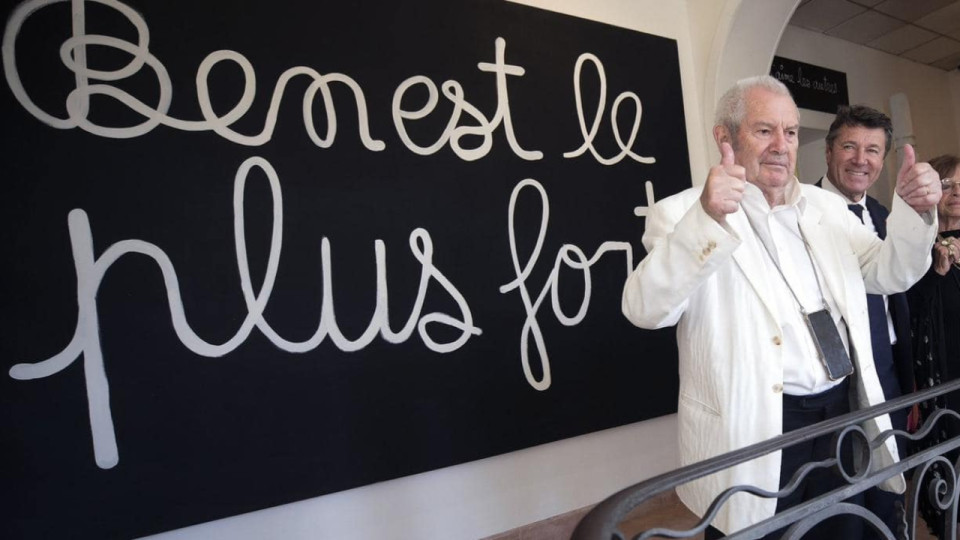 Ben est le
plus fort
aime les autres